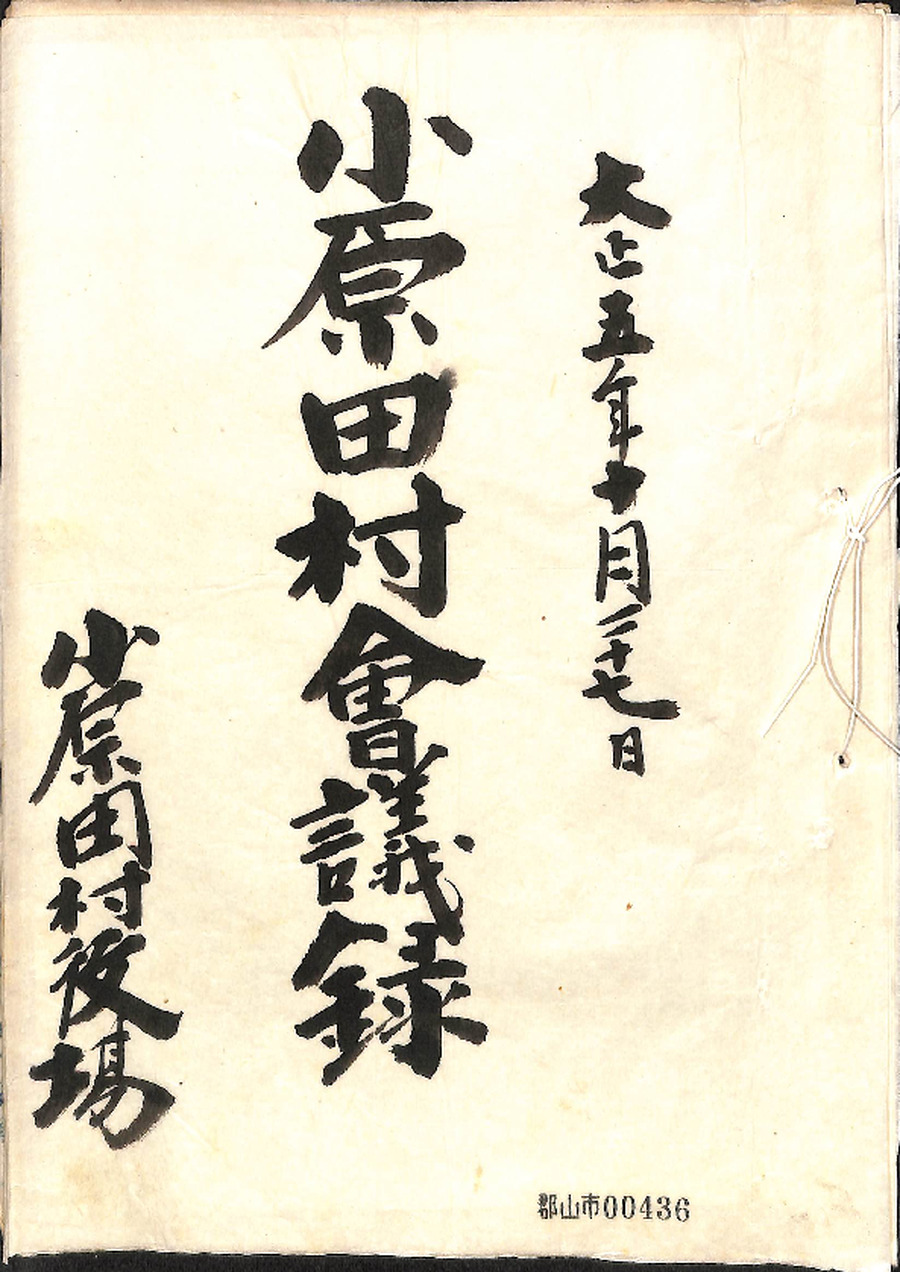 大正五年十月二十七日
小原田村會議録
小原田村役場
郡山市00436